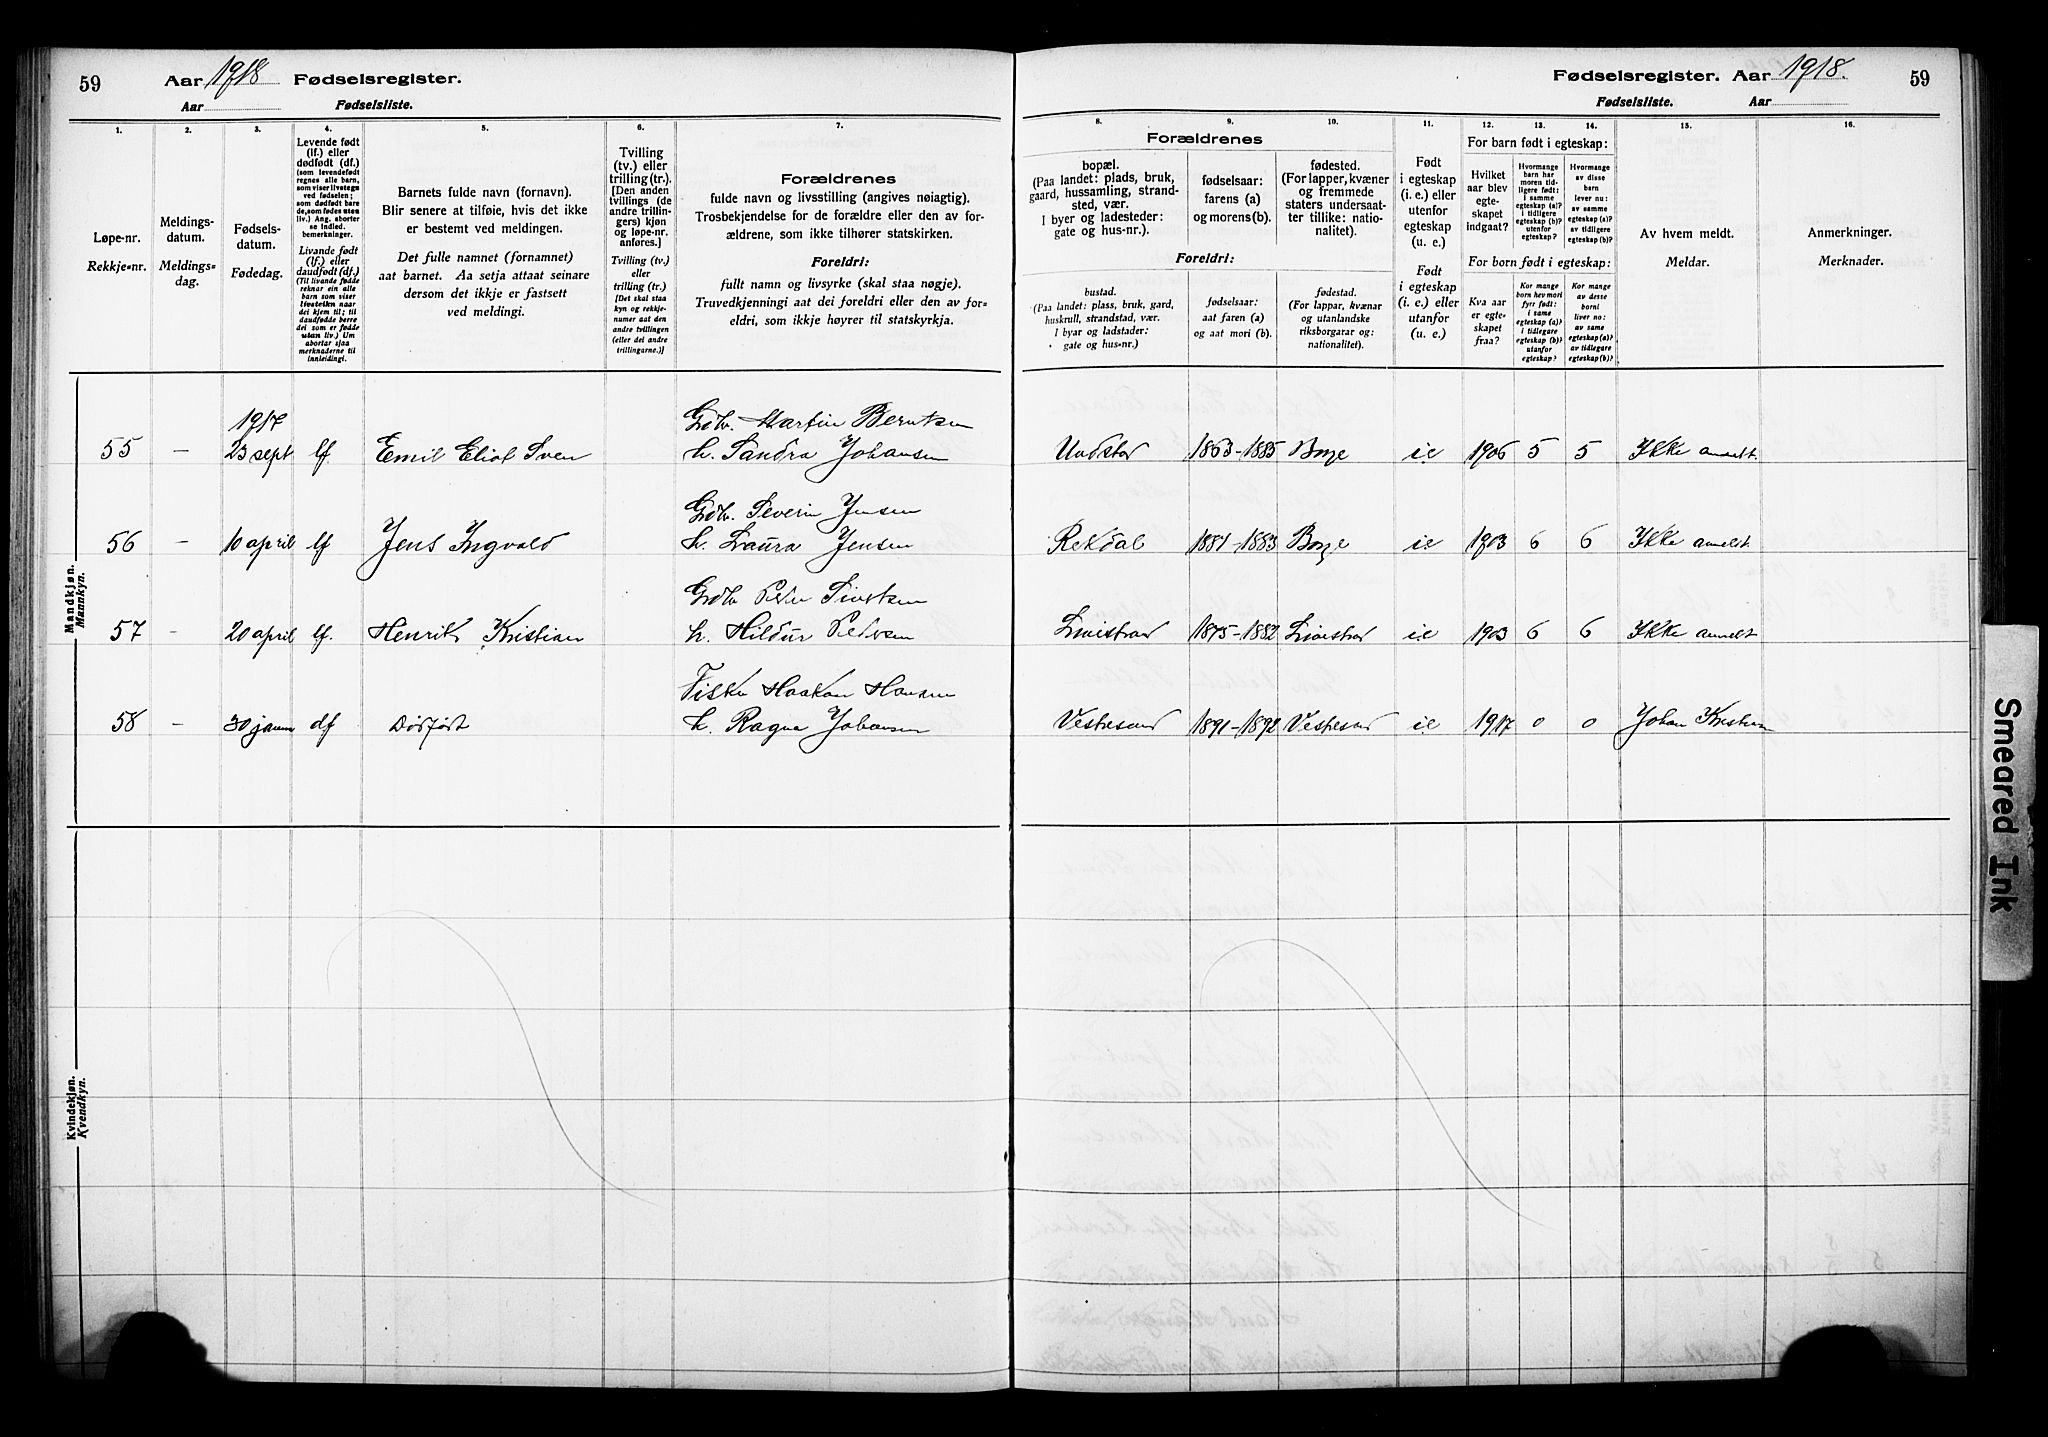 59 Aar 1918 Fødselsregister.
Aar Fødselsliste.
Fødselsregister. Aar 1918. 59
Fødselsliste. Aar
1.
Løpe-nr.
Rekkje-nr.
2.
Meldings-
datum.
Meldings-
dag.
3.
Fødsels-
datum.
Fødedag.
4.
Levende født
(lf.) eller
dødfødt (df.)
(som levendefødt
regnes alle barn,
som viser livstegn
ved fødselen;
som dødfødt ba­re
de, som fødes uten
liv.) Ang. aborter
se indled.
bemerkninger.
Livande født
(lf.) eller
daudfødt (df.)
(Til livande fødde
reknar ein alle
born som viser
livsteikn naar
dei kjem til; til
daudfødde berre
dei som er fødde
utan liv.) Um
abortar sjaa
merknaderne til
innleidingi.
5.
Barnets fulde navn (fornavn).
Blir senere at tilføie, hvis det ikke
er bestemt ved meldingen.
Det fulle namnet (fornamnet)
aat barnet. Aa setja attaat seinare
dersom det ikkje er fastsett
ved meldingi.
6.
Tvilling
(tv.) eller
trilling (tr.).
[Den anden
tvillings (de
andre trillin-
gers) kjøn
og løpe-nr.
anføres.]
Tvilling (tv.)
eller
trilling (tr.)
[Det skal staa
kyn og rekkje-
numer aat den
andre tvillingen
(eller dei andre
trillingarne.)]
7.
Forældrenes
fulde navn og livsstilling (angives nøiagtig).
Trosbekjendelse for de forældre eller den av for-
ældrene, som ikke tilhører statskirken.
Foreldri:
fullt namn og livsyrke (skal staa nøgje).
Truvedkjenningi aat dei foreldri eller den av for-
eldri, som ikkje høyrer til statskyrkja.
8.
9.
10.
Forældrenes
bopæl.
(Paa landet: plads, bruk,
gaard, hussamling, strand-
sted, vær.
I byer og ladesteder:
gate og hus-nr.).
fødselsaar:
farens (a)
og morens (b).
fødested.
(For lapper, kvæner
og fremmede
staters undersaat-
ter tillike: natio-
nalitet).
Foreldri:
bustad.
(Paa landet: plass, bruk, gard,
huskrull, strandstad, vær.
I byar og ladstader:
gate og hus-nr.)
fødselsaar:
aat faren (a)
og aat mori (b).
fødestad.
(For lappar, kvænar
og utanlandske
riksborgarar og:
nationalitet).
11.
Født
i egteskap
(i. e.) eller
utenfor
egteskap
(u. e.)
Født
i egteskap
(i. e.) eller
utanfor
(u. e.)
12.
13.
14.
For barn født i egteskap:
Hvilket
aar blev
egte-
skapet
indgaat?
Hvormange
barn har
moren tid-
ligere født:
i samme
egteskap (a)?
i tidligere
egteskap (b)?
utenfor
egteskap?
Hvormange
av disse
barn
lever nu:
av samme
egteskap (a)?
av tidligere
egteskap (b)?
For born født i egteskap:
Kva aar
er egte-
skapet
fraa?
Kor mange
born hev mori
fyrr født:
i same
egteskap (a)?
i tidlegare
egteskap (b)?
utanfor
egteskap?
Kor mange
av desse
borni
liver no:
av same
egteskap (a)?
av tidlegare
egteskap (b)?
15.
Av hvem meldt.
Meldar.
16.
Anmerkninger.
Merknader.
Mandkjøn.
Mannkyn.
1917 Gdb. Martin Berntsen
55 – 23 sept lf. Emil Eliot Sven h. Sandra Johansen Undstad 1863–1885 Borge i.e 1906 5 5 Ikke anmeldt.
Gdb. Severin Jensen
56 – 10 april lf Jens Ingvald h. Laura Jensen Rekdal 1881–1883 Borge i.e 1903 6 6 Ikke anmeldt.
Gdb Peder
57 – 20 april lf. Henrik Kristian h. Hildur Pedersen Limstrand 1875–1882 Limstrand i.e 1903 6 6 Ikke anmeldt
Fisker Haakon Hansen
58 – 30 januar df Dødfødt h. Ragna Johansen Vestresand 1891–1892 Vestresand i.e 1917 0 0 Johan Kristian
Kvindekjøn.
Kvendkyn.
Smeared Ink